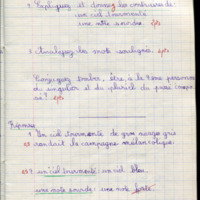 2 Expliquez et donnez les contraires de :
un ciel tourmenté
une note sourde. 2pts
3 Analysez les mots soulignés. 2pts
Conjuguez tomber, être, à la 1ère personne
du singulier et du pluriel du passé
? 2pts
Réponses
1 Un ciel tourmenté de gros nuages gris
rendait la campagne mélancolique.
un ciel tourmenté : un ciel bleu.
une note sourde : une note forte